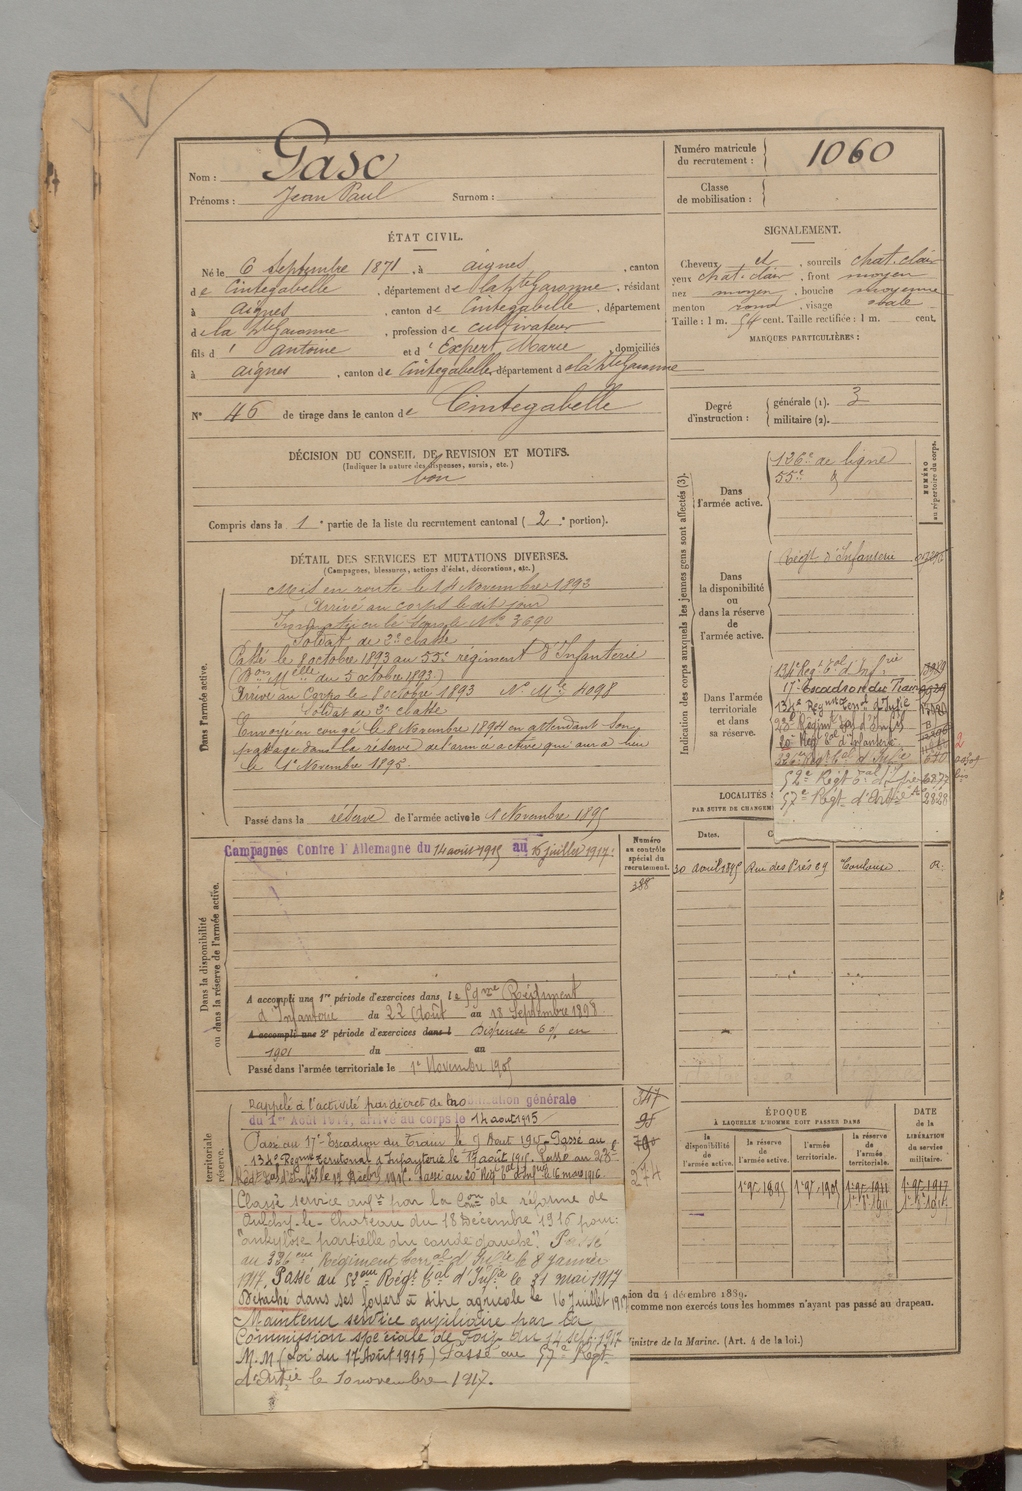 Nom : Gasc
Prénoms : Jean Paul Surnom :
Numéro matricule du recrutement : 1060
Classe de mobilisation :
ÉTAT CIVIL.
Né le 6 Septembre 1871, à aignes, canton
de Cintegabelle, département de la hte Garonne, résidant
à aignes, canton de Cintegabelle, département
de la hte Garonne, profession de cultivateur
fils d' antoine et d' Expert Marie, domiciliés
à aignes, canton de Cintegabelle, département d la hte Garonne
N° 46 de tirage dans le canton de Cintegabelle
SIGNALEMENT.
Cheveux et, sourcils chat. clair
yeux chat. clair, front moyen
nez moyen, bouche moyenne
menton rond, visage ovale
Taille : 1 m. 54 cent. Taille rectifiée : 1 m. cent.
MARQUES PARTICULIÈRES :
Degré d'instruction : générale (1). 3
militaire (2).
DÉCISION DU CONSEIL DE REVISION ET MOTIFS.
(Indiquer la nature des dispenses, sursis, etc.)
bon
Compris dans la 1e partie de la liste du recrutement cantonal (2e portion).
DÉTAIL DES SERVICES ET MUTATIONS DIVERSES.
(Campagnes, blessures, actions d'éclat, décorations, etc.)
Dans l'armée active.
Mis en route le 14 Novembre 1893
Arrivé au corps le dit jour
Immatriculé sous le No 3690
Soldat de 2e classe
Passé le 8 octobre 1893 au 55e régiment d'Infanterie
(Bon Melle du 5 octobre 1893)
Arrivé au Corps le 8 octobre 1893 No Mle 4098
Soldat de 2e classe
Envoyé en congé le 8 Novembre 1894 en attendant son
passage dans la réserve de l'armée active qui aura lieu
le 1e Novembre 1895.
Passé dans la réserve de l'armée active le 1 Novembre 1895
Indication des corps auxquels les jeunes gens sont affectés (3).
NUMÉRO au répertoire du corps.
Dans l'armée active.
126e de ligne
55e d
Dans la disponibilité ou dans la réserve de l'armée active.
Régt d'Infanterie
Dans l'armée territoriale et dans sa réserve.
134e Régt tal d'Infrie
17e Escadron du Train
134e Régmt terrt d'Infie
23e Régimt tal d'Inf
20e Régt tal d'Infanterie
336e Régt tal d'Infie
52e Régt tal d'Infie 6877
57e Régt d'Artie 2828
LOCALITÉS
PAR SUITE DE CHANGEM
Dates.
30 avril 1895 Rue des Prés 29 Toulouse R.
Campagnes Contre l'Allemagne du 14 août 1915 au 16 juillet 1917.
Numéro au contrôle spécial du recrutement.
388
Dans la disponibilité ou dans la réserve de l'armée active.
A accompli une 1re période d'exercices dans le 59me Régiment
d'Infanterie du 22 Août au 18 Septembre 1898
A accompli une 2e période d'exercices dans l Dispense 6% en
1901 du au
Passé dans l'armée territoriale le 1e Novembre 1905
territoriale réserve.
Rappelé à l'activité par décret de mobilisation générale
du 1er Août 1914, arrivé au corps le 14 août 1915
Passé au 17e Escadron du Train le 9 Août 1915. Passé au
134e Régmt territorial d'Infanterie le 19 août 1915. Passé au 23e
Régt tal d'Infie le 12 Décbre 1915. Passé au 20 Régt tal d'Infie le 16 mars 1916
Classé service auxre par la Comon de réforme de
Oulchy-le-Chateau du 18 Décembre 1916 pour:
"ankylose partielle du coude gauche". Passé
au 336eme Régiment terral d'Infie le 8 janvier
1917. Passé au 52eme Régt tal d'Infie le 31 mai 1917
Détaché dans ses foyers à titre agricole le 16 Juillet 1917
Maintenu service auxiliaire par la
Commission spéciale de Foix du 14 sept. 1917
M.M (Loi du 17 Août 1915) Passé au 57e Régt
d'Artie le 10 novembre 1917.
ÉPOQUE
À LAQUELLE L'HOMME DOIT PASSER DANS
la disponibilité de l'armée active.
la réserve de l'armée active.
l'armée territoriale.
la réserve de l'armée territoriale.
DATE de la LIBÉRATION du service militaire.
1er 9bre 1895 1er 9bre 1905 1er 9bre 1911 1er 9bre 1917
ion du 4 décembre 1889.
comme non exercés tous les hommes n'ayant pas passé au drapeau.
inistre de la Marine. (Art. 4 de la loi.)